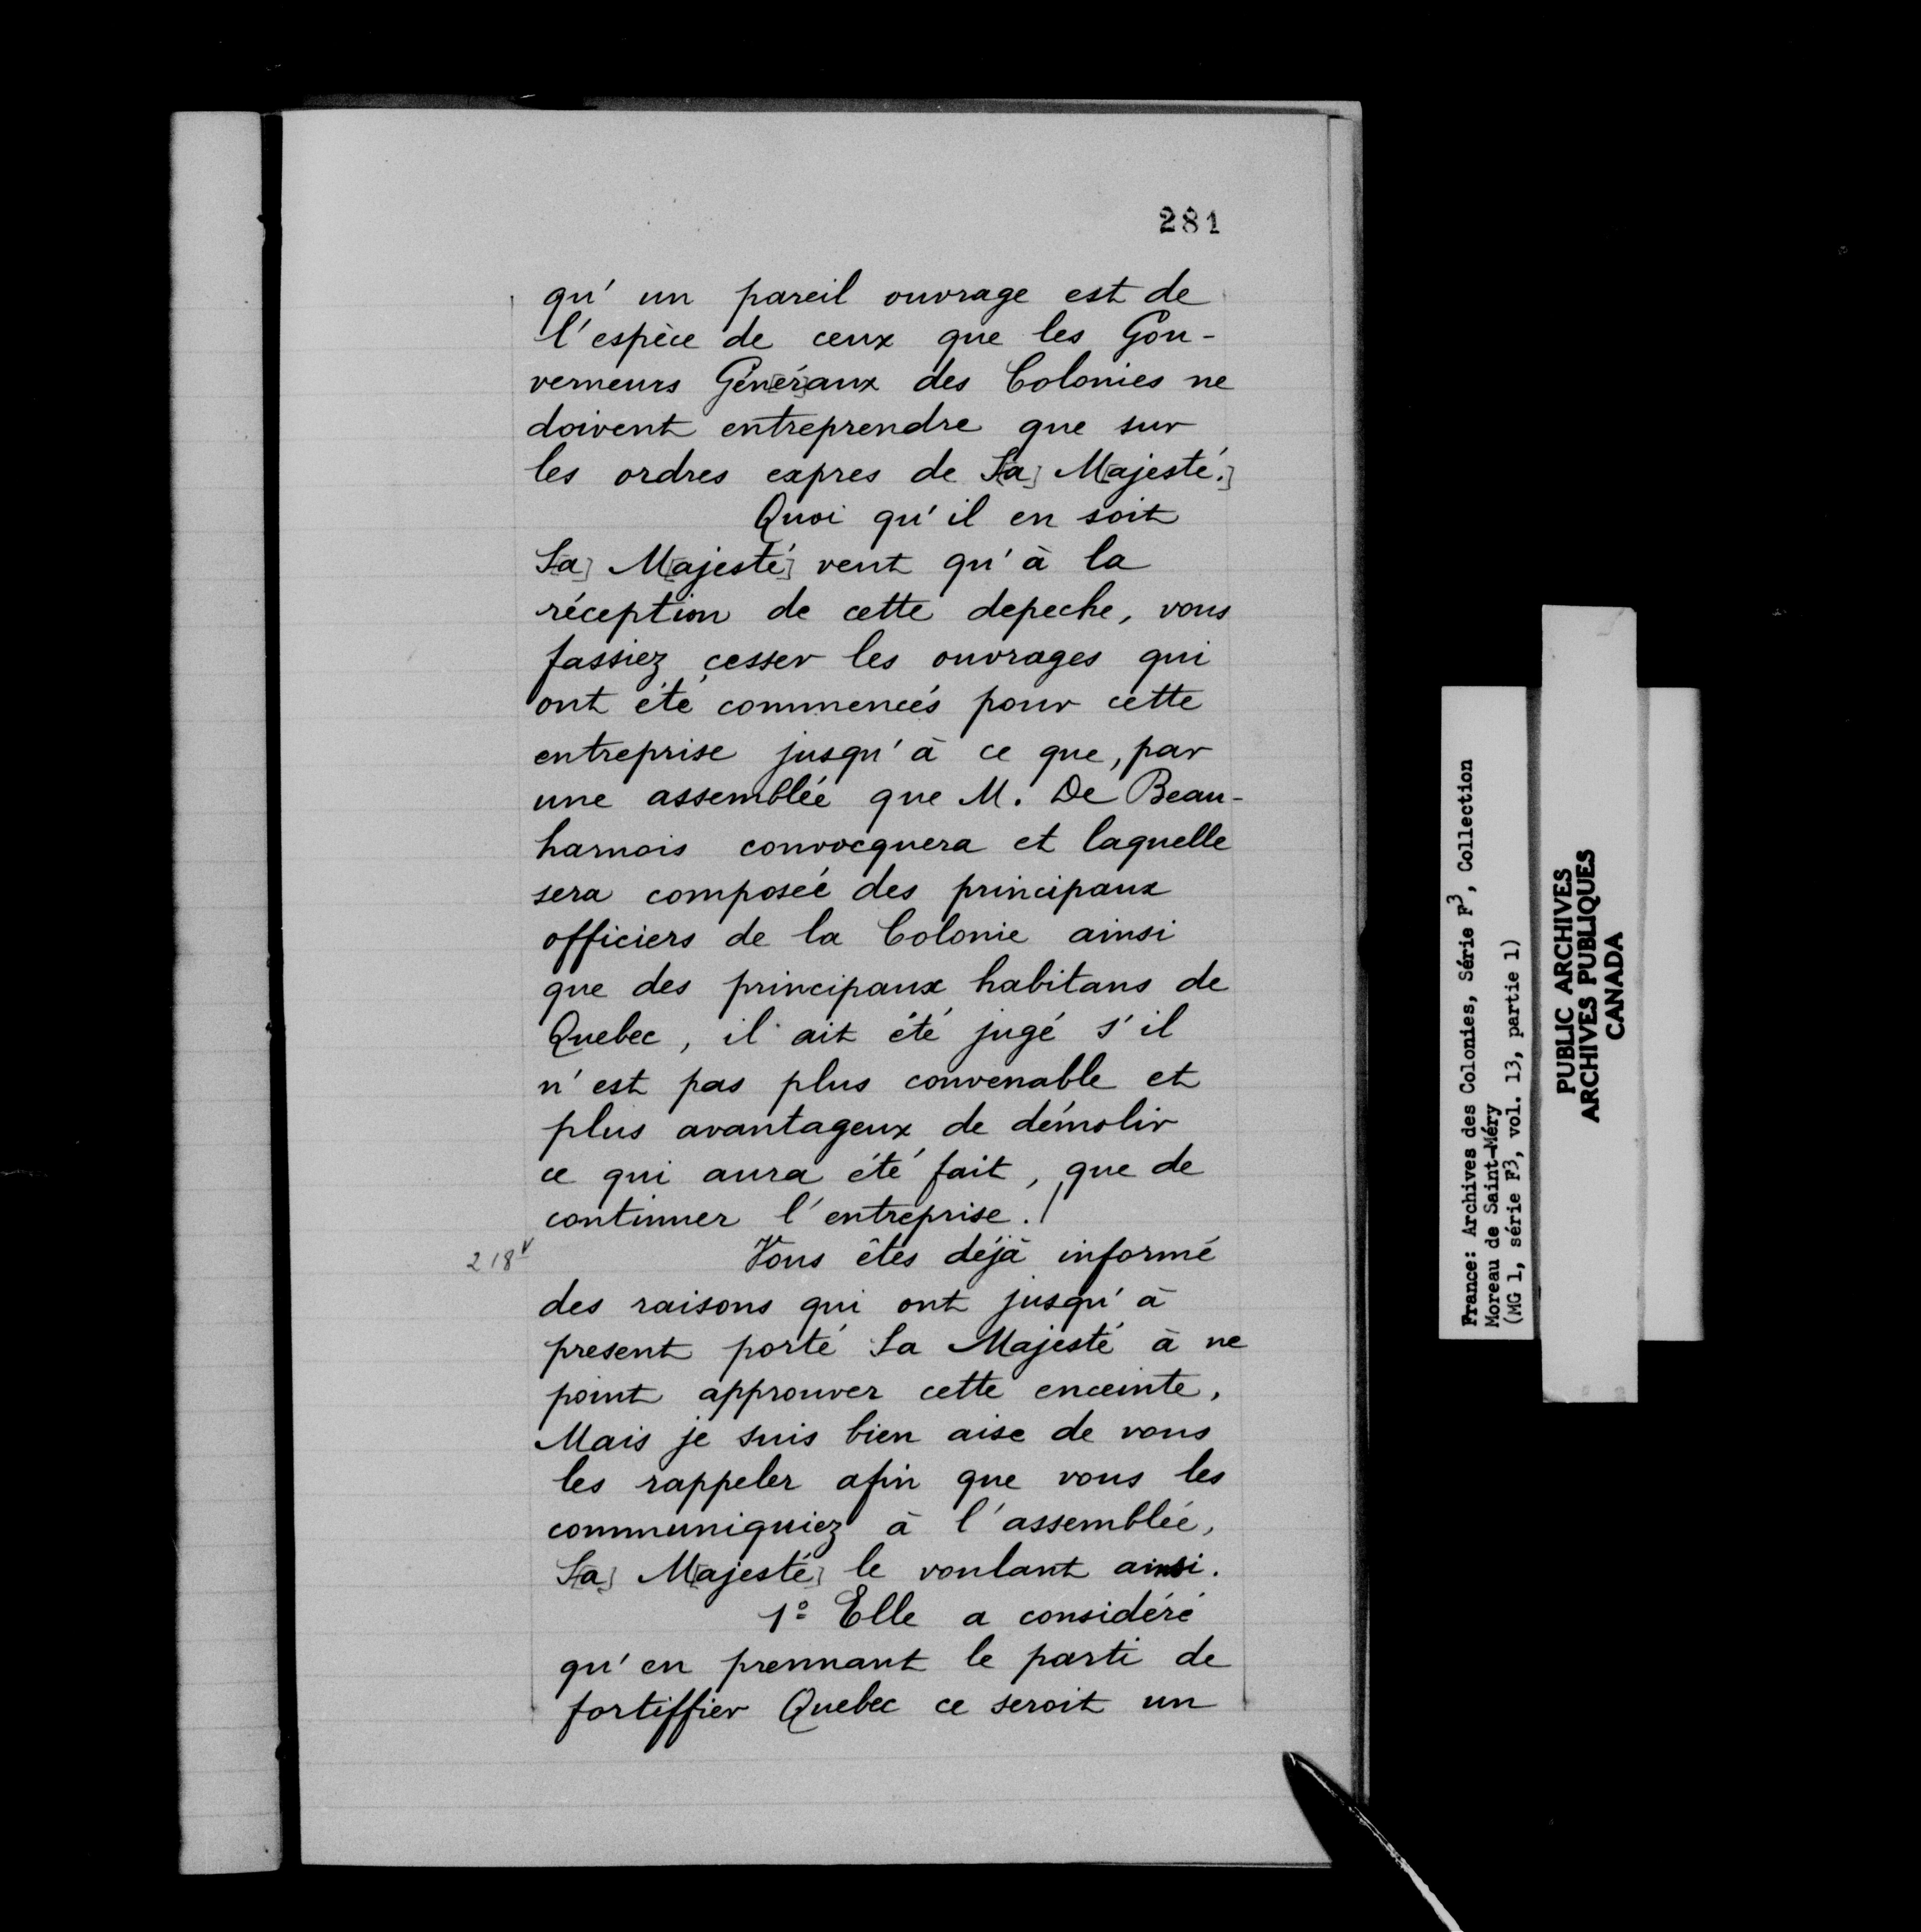 281
qu'un pareil ouvrage est de
l'espèce de ceux que les Gou-
verneurs Gén[ér]aux des Colonies ne
doivent entreprendre que sur
les ordres expres de S[a] M[ajesté.]
Quoi qu'il en soit
S[a] M[ajesté] veut qu'à la
réception de cette depeche, vous
fassiez cesser les ouvrages qui
ont été commencés pour cette
entreprise jusqu'à ce que, par
une assemblée que M. De Beau-
harnois convocquera et laquelle
sera composée des principaux
officiers de la Colonie ainsi
que des principaux habitans de
Quebec, il ait été jugé s'il
n'est pas plus convenable et
plus avantageux de démolir
ce qui aura été fait, que de
continuer l'entreprise./
218v
Vous êtes déjà informé
des raisons qui ont jusqu'à
present porté Sa Majesté à ne
point approuver cette enceinte,
Mais je suis bien aise de vous
les rappeler afin que vous les
communiquiez à l'assemblée,
S[a] M[ajesté] le voulant ainsi.
1º Elle a considéré
qu'en prennant le parti de
fortiffier Quebec ce seroit un
France: Archives des Colonies, Série F3, Collection
Moreau de Saint-Méry
(MG 1, série F3, vol. 13, partie 1)
PUBLIC ARCHIVES
ARCHIVES PUBLIQUES
CANADA